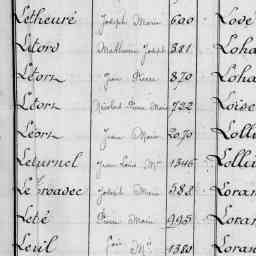 Létheuré Joseph Marie 600 Love
Létoro Mathurin Joseph 381 Loha
Léon Jean Pierre 870 Loha
Léon Nicolas Pierre Marie 722 Loise
Léon Jean Marie 2070 Lolli
Leturnel Jean Louis Mie 1346 Lollie
Le Troadec Joseph Marie 582 Loran
Lolé Pierre Marie 995 Loran
Leuil Mie 1380 Loran